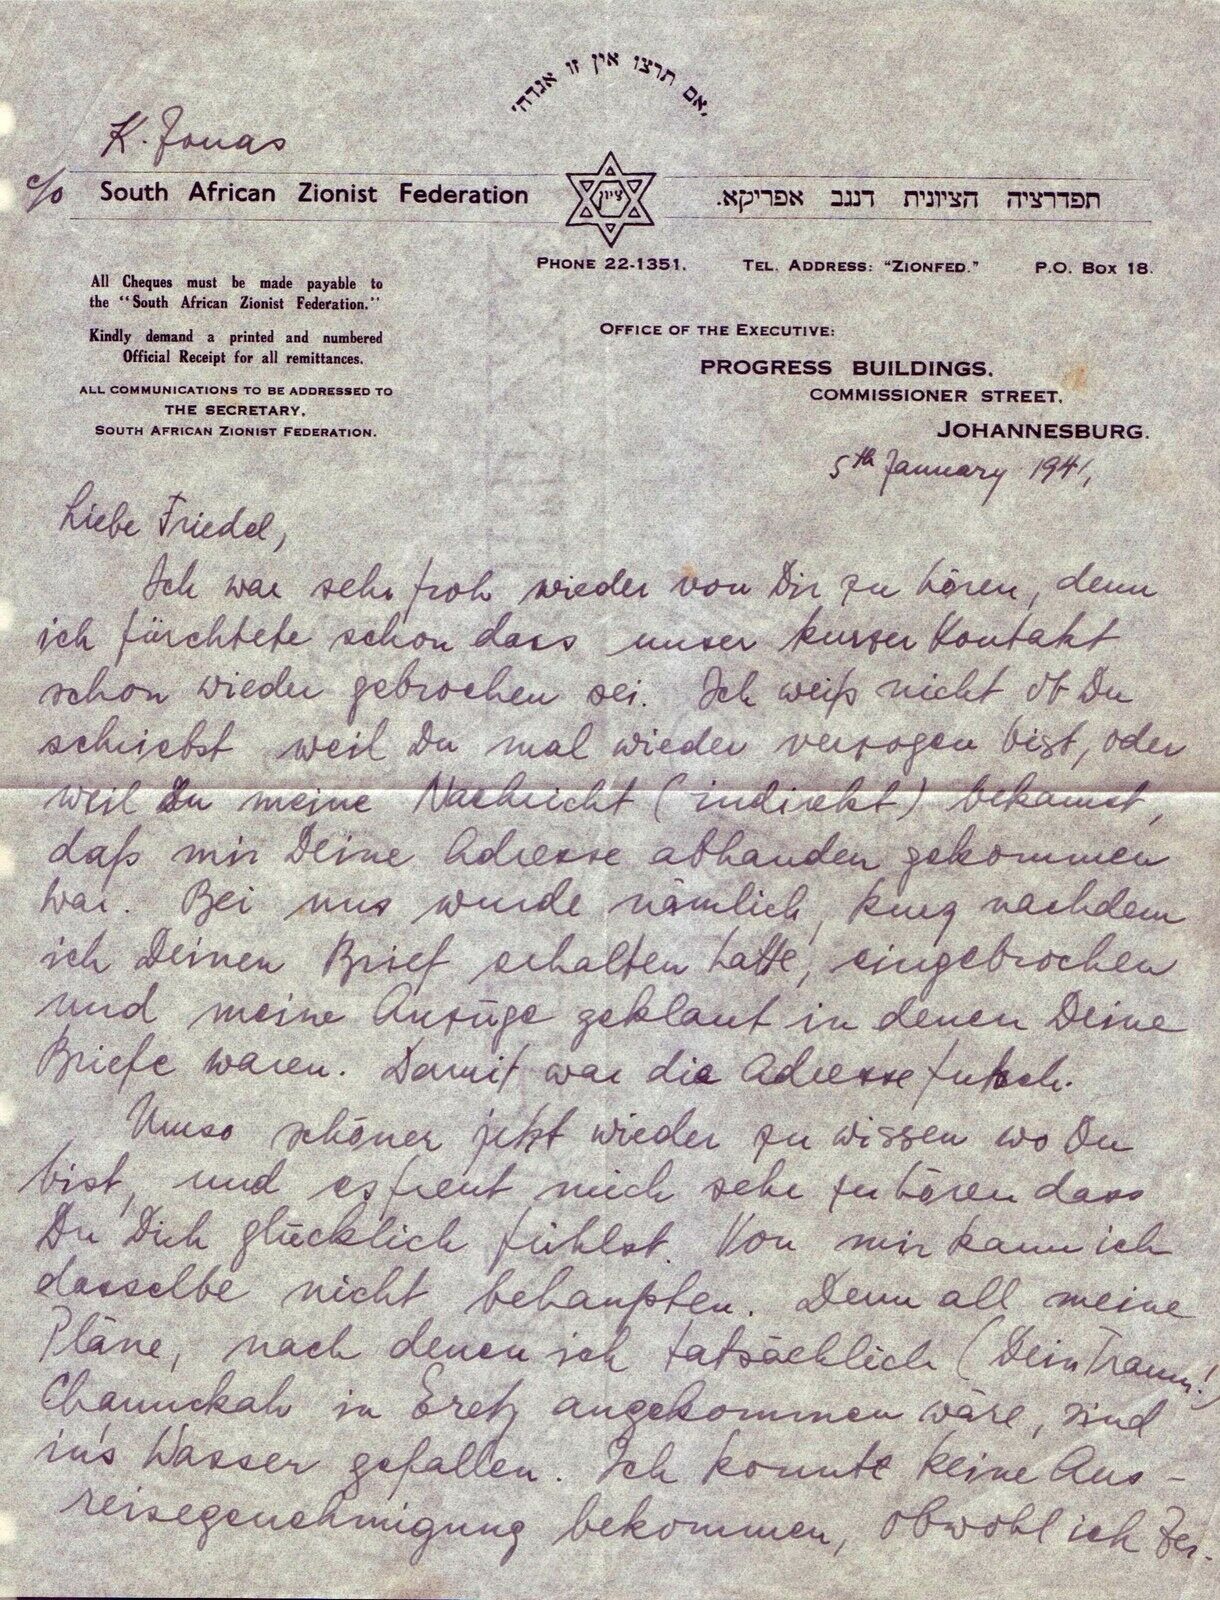 "אם תרצו אין זו אגדה"
K. Jonas
c/o South African Zionist Federation
ציון
הפדרציה הציונית דנגב אפריקא.
PHONE 22-1351.
TEL. ADDRESS: "ZIONFED."
P.O. BOX 18.
All Cheques must be made payable to
the "South African Zionist Federation."
Kindly demand a printed and numbered
Official Receipt for all remittances.
ALL COMMUNICATIONS TO BE ADDRESSED TO
THE SECRETARY,
SOUTH AFRICAN ZIONIST FEDERATION.
OFFICE OF THE EXECUTIVE:
PROGRESS BUILDINGS,
COMMISSIONER STREET,
JOHANNESBURG.
5th January 1941,
Liebe Friedel,
Ich war sehr froh wieder von Dir zu hören, denn
ich fürchtete schon dass unser kurzer Kontakt
schon wieder gebrochen sei. Ich weiß nicht ob Du
schriebst weil Du mal wieder verzogen bist, oder
weil Du meine Nachricht (indirekt) bekamst,
daß mir Deine Adresse abhanden gekommen
war. Bei uns wurde nämlich, kurz nachdem
ich Deinen Brief erhalten hatte, eingebrochen
und meine Anzüge geklaut in denen Deine
Briefe waren. Damit war die Adresse futsch.
Umso schöner jetzt wieder zu wissen wo Du
bist, und es freut mich sehr zu hören dass
Du Dich glücklich fühlst. Von mir kann ich
dasselbe nicht behaupten. Denn all meine
Pläne, nach denen ich tatsächlich (Dein Traum!)
Channukah in Eretz angekommen wäre, sind
in's Wasser gefallen. Ich konnte keine Aus-
reisegenehmigung bekommen, obwohl ich Zer-